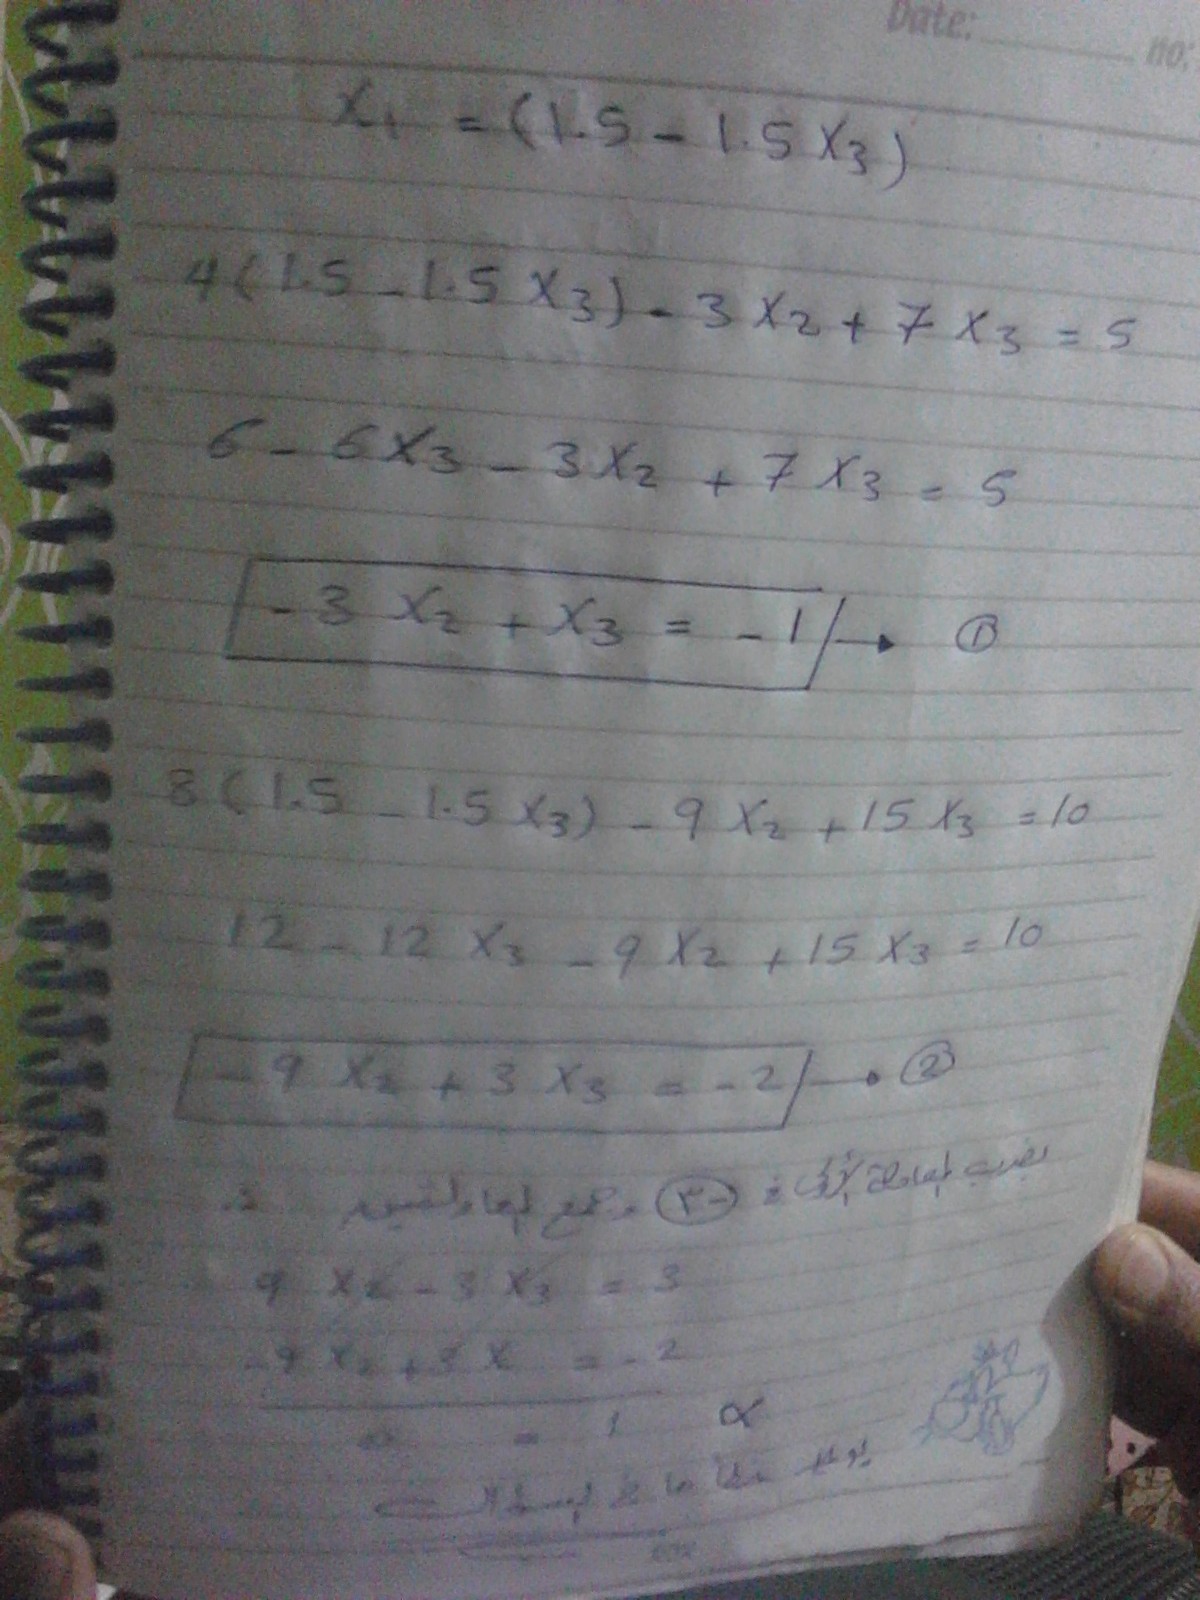 Date: no:
X₁ = (1.5 - 1.5 X₃)
4(1.5 - 1.5 X₃) - 3 X₂ + 7 X₃ = 5
6 - 6X₃ - 3X₂ + 7 X₃ = 5
-3 X₂ + X₃ = -1 → ①
8(1.5 - 1.5 X₃) - 9 X₂ + 15 X₃ = 10
12 - 12 X₃ - 9 X₂ + 15 X₃ = 10
-9 X₂ + 3 X₃ = -2 → ②
بضرب المعادلة الأولى في (-٣) وجمع المعادلتين
9 X₂ - 3 X₃ = 3
-9 X₂ + 3 X = -2
0 = 1
يوجد خطأ ما في